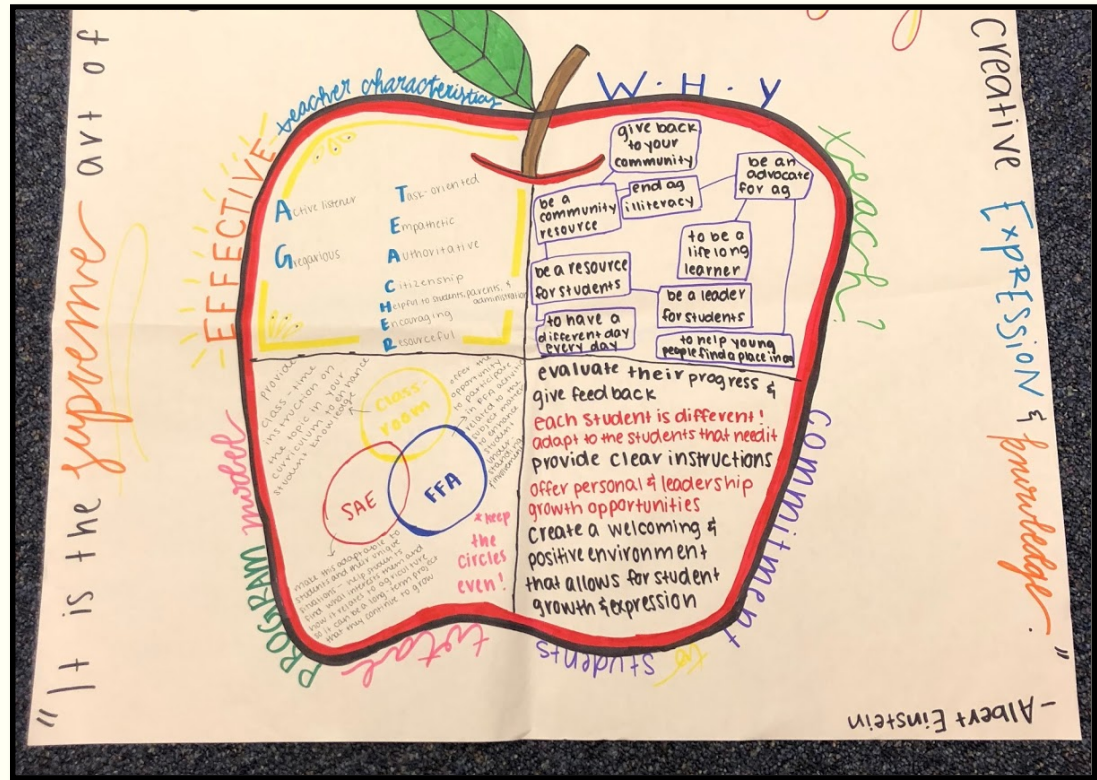 "It is the supreme art of
creative Expression & knowledge."
- Albert Einstein
EFFECTIVE teacher characteristics
Active listener
Gregarious
Task-oriented
Empathetic
Authoritative
Citizenship
Helpful to students, parents, & administration
Encouraging
Resourceful
W.H.Y
teach?
give back
to your
community
be an
advocate
for ag
end ag
illiteracy
be a
community
resource
to be a
life long
learner
be a resource
for students
be a leader
for students
to have a
different day
every day
to help young
people find a place in ag
PROGRAM model
total
provide
class-time
instruction in
the topic in your
curriculum to enhance
students knowledge
Class-
room
offer the
opportunity
to participate
in FFA activities
related to the
subject matter
to enhance
student
under
standing
&involvement
SAE
FFA
make this adaptable to
students and their unique
situations - help students
find what interests them and
how it relates to agriculture
so it can be a long-term project
that they continue to grow
* keep
the
circles
even!
commitment
to
students
evaluate their progress &
give feedback
each student is different!
adapt to the students that need it
provide clear instructions
offer personal & leadership
growth opportunities
create a welcoming &
positive environment
that allows for student
growth & expression